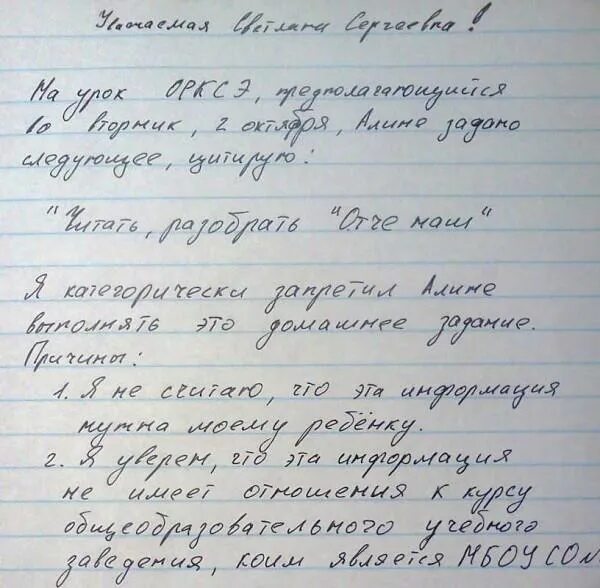 Уважаемая Светлана Сергаевна!
На урок ОРКСЭ, предполагающийся
во вторник, 2 октября, Алине задано
следующее, цитирую:
"Читать, разобрать "Отче наш"
Я категорически запретил Алине
выполнять это домашнее задание.
Причины:
1. Я не считаю, что эта информация
нужна моему ребёнку.
2. Я уверен, что эта информация
не имеет отношения к курсу
общеобразовательного учебного
заведения, коим является МБОУСО